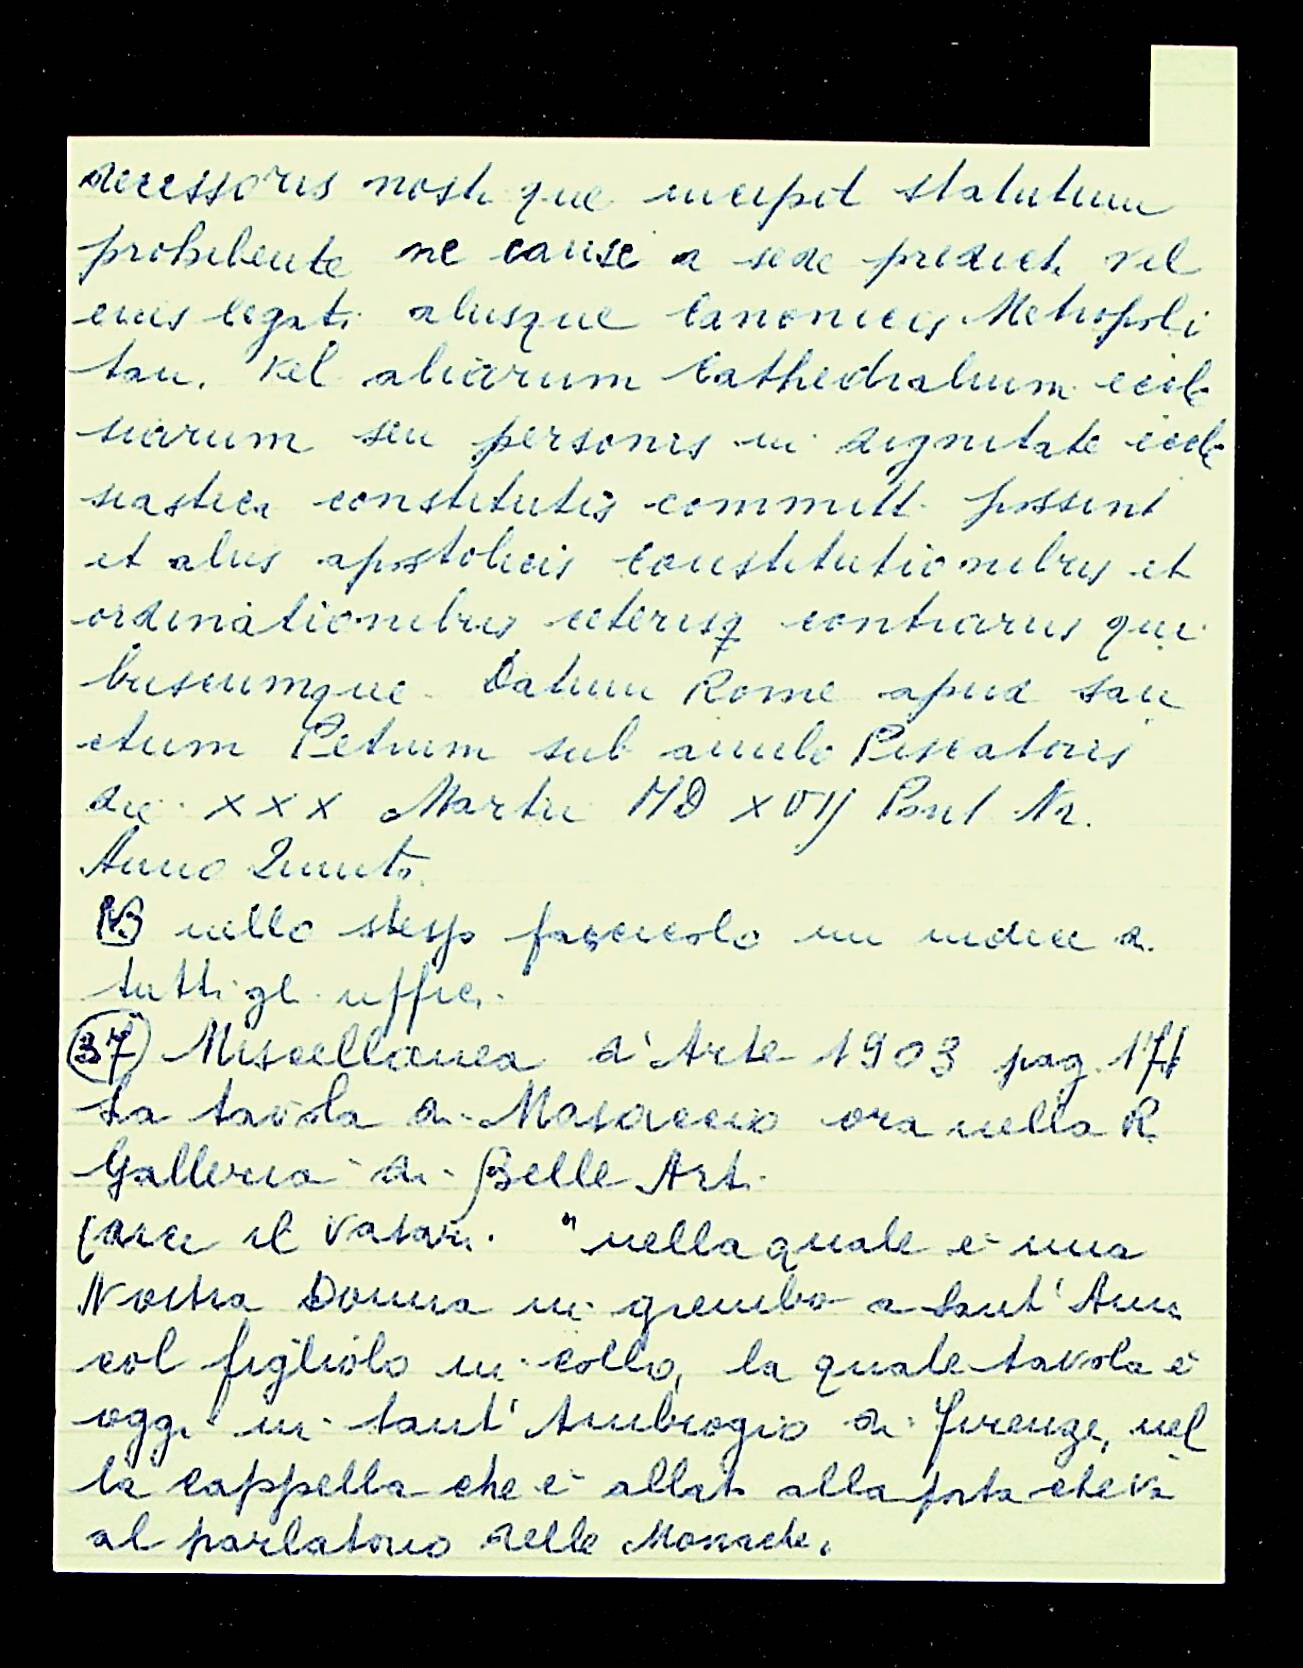 decessoris nostri que incipit statutum
prohibente ne cause a sede predict. vel
eius legati aliisque Canonicis Metropoli
tan. vel aliarum Cathedralium eccle
siarum seu personis in dignitate eccle
siastica constitutis committ. possint
et aliis apostolicis constitutionibus et
ordinationibus ceterisq contrariis qui
buscumque. Datum Rome apud San
ctum Petrum sub annulo Piscatoris
die XXX Martii MDXVIJ Pont Nr.
Anno Quinto.
NB nello stesso fascicolo un indice di
tutti gli uffici.
37) Miscellanea d'Arte 1903 pag.
La tavola di Masaccio ora nella R.
Galleria di Belle Arti.
(dice il Vasari. "nella quale è una
Nostra Donna in grembo a Sant'Anna
col figliolo in collo, la quale tavola è
oggi in Sant'Ambrogio di Firenze, nel
la cappella che è allato alla porta che va
al parlatorio delle Monache.